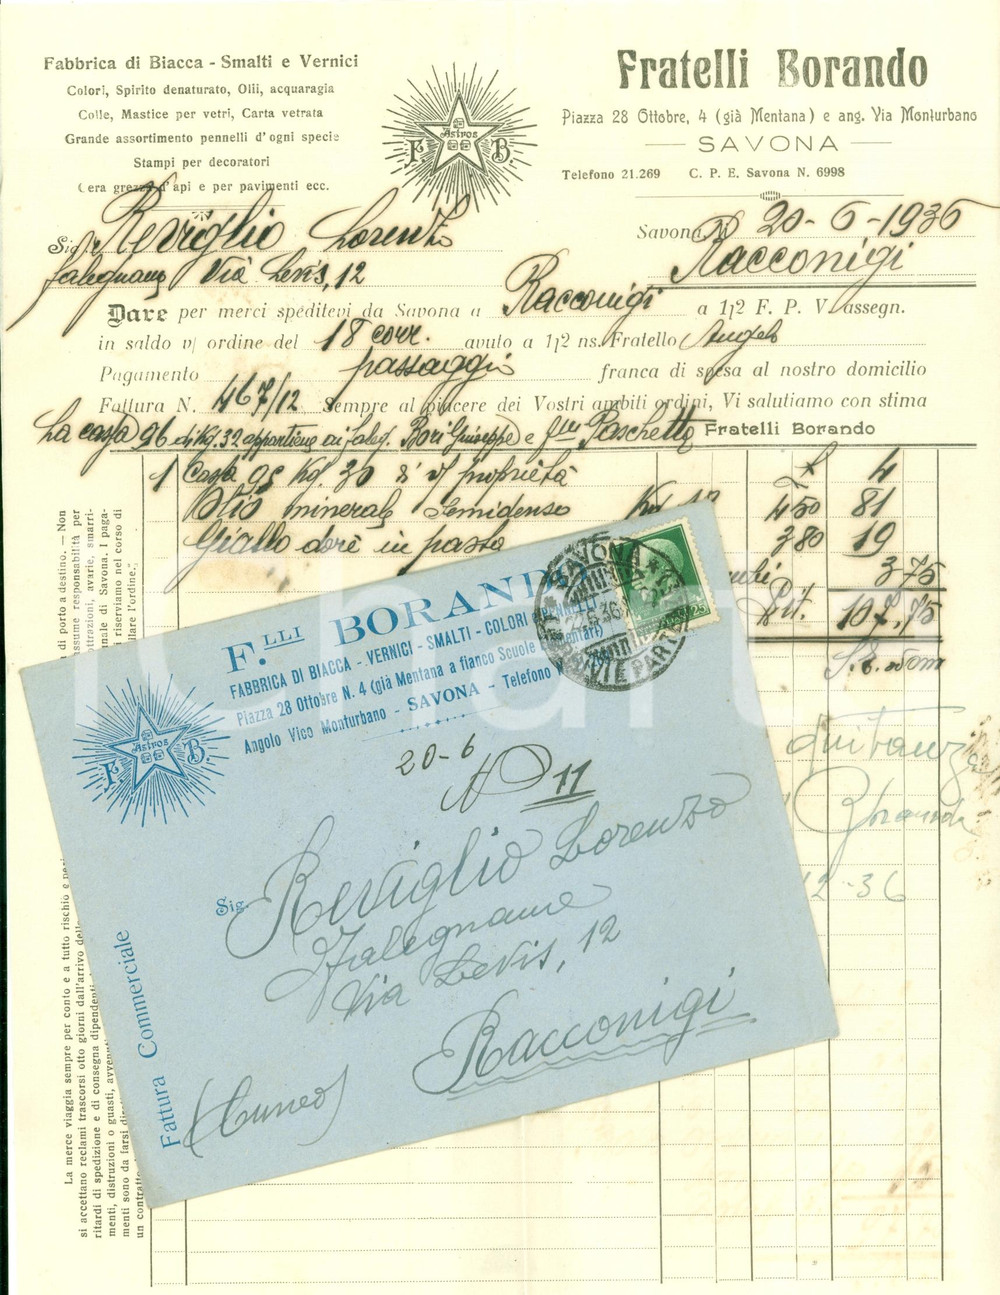 Fabbrica di Biacca - Smalti e Vernici
Colori, Spirito denaturato, Olii, acquaragia
Colle, Mastice per vetri, Carta vetrata
Grande assortimento pennelli d'ogni specie
Stampi per decoratori
Cera grezza d'api e per pavimenti ecc.
Astros
F. B.
Fratelli Borando
Piazza 28 Ottobre, 4 (già Mentana) e ang. Via Monturbano
SAVONA
Telefono 21.269 C. P. E. Savona N. 6998
Savona, li 20-6-1936
Sig. Reviglio Lorenzo
falegname Via Levis, 12 Racconigi
Dare per merci speditevi da Savona a Racconigi a 1/2 F. P. V. assegn.
in saldo v/ ordine del 18 corr. avuto a 1/2 ns. Fratello Angelo
Pagamento passaggio franca di spesa al nostro domicilio
Fattura N. 467/12 Sempre al piacere dei Vostri ambiti ordini, Vi salutiamo con stima
La cassa 96 di Kg. 32 appartiene ai faleg. Bori Giuseppe e f.lli Paschetta Fratelli Borando
1 Cassa 95 Kg. 30 è v/ proprietà 4
Olio minerale Semidenso 450 81
Giallo dorè in pasta 380 19
3.75
107.75
S. E. ed om
quitanza
Borando
12-36
La merce viaggia sempre per conto e a tutto rischio e
si accettano reclami trascorsi otto giorni dall'arrivo
ritardi di spedizione e di consegna dipendenti
menti, distruzioni o guasti,
menti sono da farsi
un contratto
di porto a destino. — Non
assume responsabilità per
sottrazioni, avarie, smarri-
di Savona. I paga-
ci riserviamo nel corso di
l'ordine.
F.LLI BORANDO
FABBRICA DI BIACCA - VERNICI - SMALTI - COLORI
Piazza 28 Ottobre N. 4 (già Mentana a fianco Scuole Elementari)
Angolo Vico Monturbano - SAVONA - Telefono
Astros
F. B.
SAVONA
ARRIVI E PARTENZE
25
20-6
N 11
Sig. Reviglio Lorenzo
Falegname
Via Levis, 12
Racconigi
(Cuneo)
Fattura Commerciale